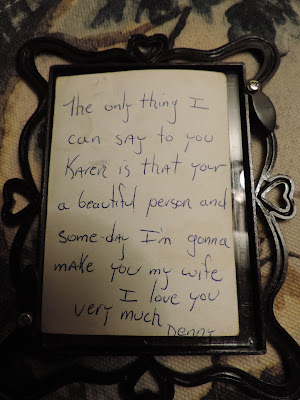 The only thing I
can say to you
Karen is that your
a beautiful person and
some-day I'm gonna
make you my wife
I love you
very much
Denny